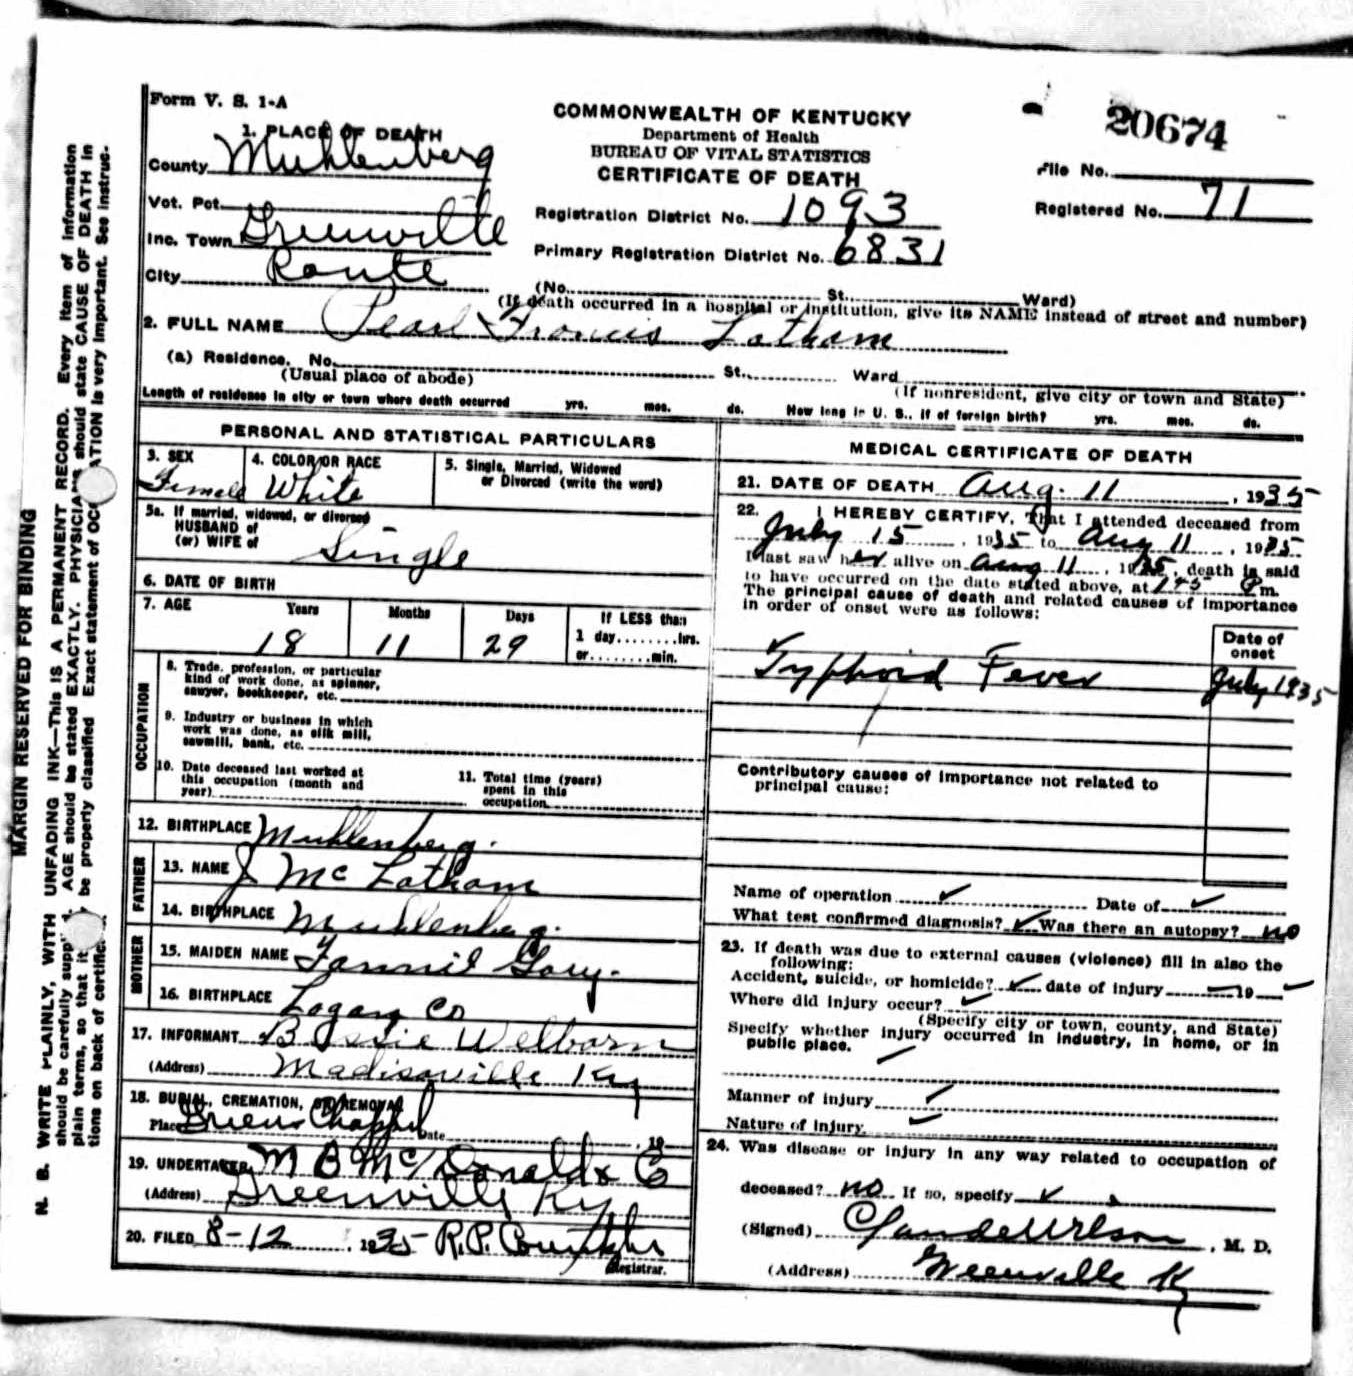 MARGIN RESERVED FOR BINDING
N. B. WRITE PLAINLY, WITH UNFADING INK—THIS IS A PERMANENT RECORD. Every item of information
should be carefully supp AGE should be stated EXACTLY. PHYSICIANS should state CAUSE OF DEATH in
plain terms, so that it be properly classified. Exact statement of OCCUPATION is very important. See instruc-
tions on back of certific
Form V. S. 1-A
COMMONWEALTH OF KENTUCKY
Department of Health
BUREAU OF VITAL STATISTICS
CERTIFICATE OF DEATH
20674
File No.
Registered No. 71
1. PLACE OF DEATH
County Muhlenberg
Vot. Pct.
Inc. Town Greenville
City Route
Registration District No. 1093
Primary Registration District No. 6831
(No. St. Ward)
(If death occurred in a hospital or institution, give its NAME instead of street and number)
2. FULL NAME Pearl Francis Latham
(a) Residence. No. St. Ward
(Usual place of abode) (If nonresident, give city or town and State)
Length of residence in city or town where death occurred yrs. mos. ds. How long in U. S., if of foreign birth? yrs. mos. ds.
PERSONAL AND STATISTICAL PARTICULARS
3. SEX Female
4. COLOR OR RACE White
5. Single, Married, Widowed
or Divorced (write the word)
5a. If married, widowed, or divorced
HUSBAND of
(or) WIFE of Single
6. DATE OF BIRTH
7. AGE Years Months Days If LESS than
18 11 29 1 day........hrs.
or........min.
OCCUPATION
8. Trade, profession, or particular
kind of work done, as spinner,
sawyer, bookkeeper, etc.
9. Industry or business in which
work was done, as silk mill,
sawmill, bank, etc.
10. Date deceased last worked at
this occupation (month and
year)
11. Total time (years)
spent in this
occupation
12. BIRTHPLACE Muhlenberg.
FATHER
13. NAME J Mc Latham
14. BIRTHPLACE Muhlenberg.
MOTHER
15. MAIDEN NAME Fannie Gary.
16. BIRTHPLACE Logan Co
17. INFORMANT Welborn
(Address) Madisonville Ky
18. BURIAL, CREMATION, OR REMOVAL
Place Greens Chappel Date , 19
19. UNDERTAKER M B McDonald & Co
(Address) Greenville Ky
20. FILED 8-12, 1935 R.P.
Registrar.
MEDICAL CERTIFICATE OF DEATH
21. DATE OF DEATH Aug. 11, 1935
22. I HEREBY CERTIFY, That I attended deceased from
July 15, 1935 to Aug 11, 1935
I last saw her alive on Aug 11, 1935, death is said
to have occurred on the date stated above, at 145 P m.
The principal cause of death and related causes of importance
in order of onset were as follows:
Date of
onset
Typhoid Fever July 1935
Contributory causes of importance not related to
principal cause:
Name of operation ✓ Date of ✓
What test confirmed diagnosis? ✓ Was there an autopsy? no
23. If death was due to external causes (violence) fill in also the
following:
Accident, suicide, or homicide? ✓ date of injury 19 ✓
Where did injury occur? ✓
(Specify city or town, county, and State)
Specify whether injury occurred in industry, in home, or in
public place.
Manner of injury
Nature of injury
24. Was disease or injury in any way related to occupation of
deceased? no If so, specify ✓
(Signed) Claude Wilson, M. D.
(Address) Greenville Ky